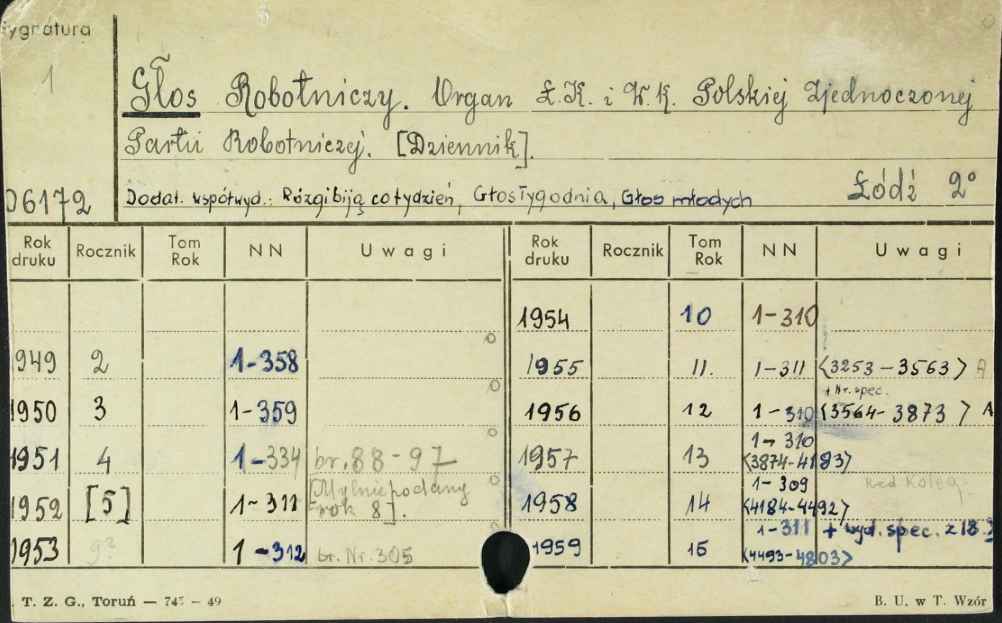 ygnatura
1
Głos Robotniczy. Organ Ł.K. i W.K. Polskiej Zjednoczonej
Partii Robotniczej. [Dziennik].
06172
Dodat. współwyd.: Rózgi biją co tydzień, Głos Tygodnia, Głos młodych
Łódź 2°
Rok druku Rocznik Tom Rok NN Uwagi Rok druku Rocznik Tom Rok NN Uwagi
1954 10 1-310
1949 2 1-358 1955 11. 1-311 <3253-3563> A
+ Nr. spec.
1950 3 1-359 1956 12 1-310 <3564-3873> A
1951 4 1-334 br. 88-97 1957 13 1-310 <3874-4183>
1952 [5] 1-311 [Mylnie podany rok 8]. 1958 14 1-309 <4184-4492>
1953 9? 1-312 br. Nr. 305 1959 15 1-311 <4493-4803> + wyd. spec. z 18.
. T. Z. G., Toruń — 745 - 49
B. U. w T. Wzór